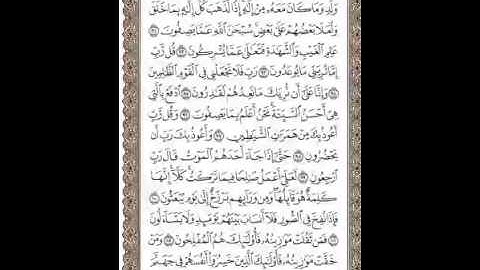 وَلَدٍ وَمَا كَانَ مَعَهُ مِنْ إِلَٰهٍ إِذًا لَّذَهَبَ كُلُّ إِلَٰهٍ بِمَا خَلَقَ
وَلَعَلَا بَعْضُهُمْ عَلَىٰ بَعْضٍ سُبْحَٰنَ ٱللَّهِ عَمَّا يَصِفُونَ ٩١
عَٰلِمِ ٱلْغَيْبِ وَٱلشَّهَٰدَةِ فَتَعَٰلَىٰ عَمَّا يُشْرِكُونَ ٩٢ قُل رَّبِّ
إِمَّا تُرِيَنِّي مَا يُوعَدُونَ ٩٣ رَبِّ فَلَا تَجْعَلْنِي فِي ٱلْقَوْمِ ٱلظَّٰلِمِينَ
٩٤ وَإِنَّا عَلَىٰ أَن نُّرِيَكَ مَا نَعِدُهُمْ لَقَٰدِرُونَ ٩٥ ٱدْفَعْ بِٱلَّتِي
هِيَ أَحْسَنُ ٱلسَّيِّئَةَ نَحْنُ أَعْلَمُ بِمَا يَصِفُونَ ٩٦ وَقُل رَّبِّ
أَعُوذُ بِكَ مِنْ هَمَزَٰتِ ٱلشَّيَٰطِينِ ٩٧ وَأَعُوذُ بِكَ رَبِّ أَن
يَحْضُرُونِ ٩٨ حَتَّىٰ إِذَا جَآءَ أَحَدَهُمُ ٱلْمَوْتُ قَالَ رَبِّ
ٱرْجِعُونِ ٩٩ لَعَلِّي أَعْمَلُ صَٰلِحًا فِيمَا تَرَكْتُ كَلَّا إِنَّهَا
كَلِمَةٌ هُوَ قَآئِلُهَا وَمِن وَرَآئِهِم بَرْزَخٌ إِلَىٰ يَوْمِ يُبْعَثُونَ ١٠٠
فَإِذَا نُفِخَ فِي ٱلصُّورِ فَلَآ أَنسَابَ بَيْنَهُمْ يَوْمَئِذٍ وَلَا يَتَسَآءَلُونَ
١٠١ فَمَن ثَقُلَتْ مَوَٰزِينُهُ فَأُو۟لَٰٓئِكَ هُمُ ٱلْمُفْلِحُونَ ١٠٢ وَمَنْ
خَفَّتْ مَوَٰزِينُهُ فَأُو۟لَٰٓئِكَ ٱلَّذِينَ خَسِرُوٓا۟ أَنفُسَهُمْ فِي جَهَنَّمَ